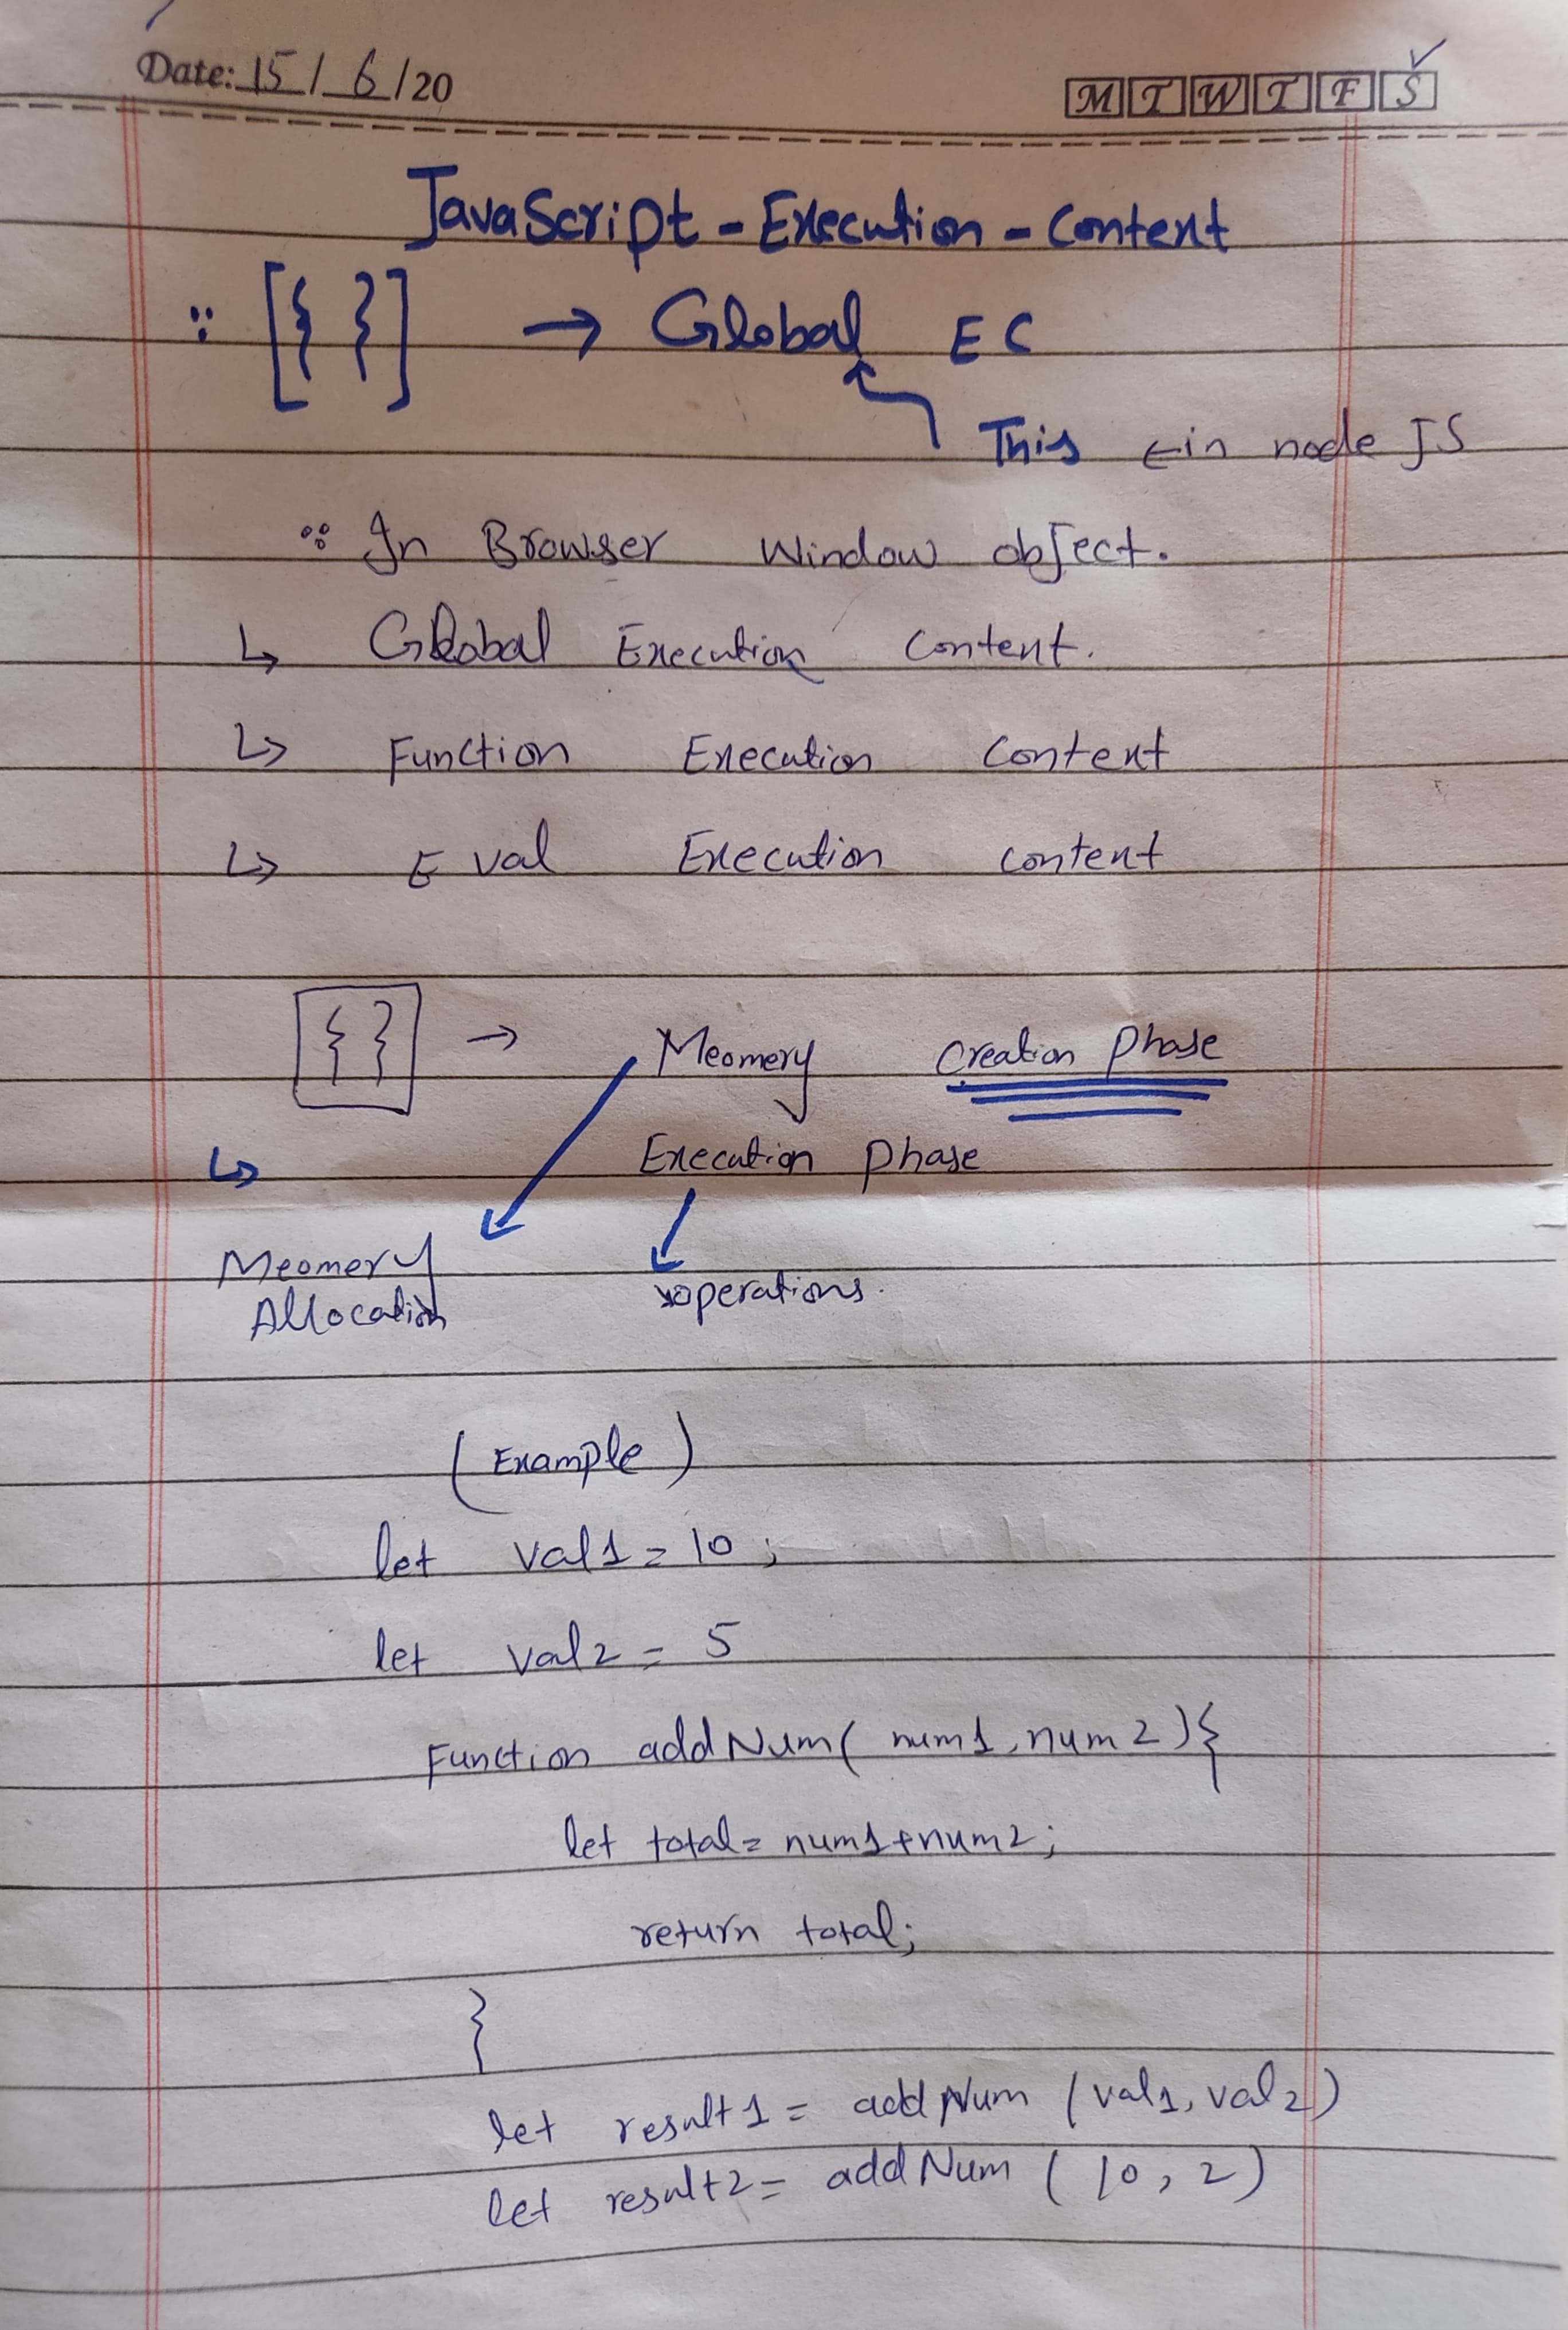 Date: 15/6/20
M T W T F S
JavaScript - Execution - Content
[{ }] → Global EC
This ← in node JS
In Browser Window object.
↳ Global Execution Content.
↳ Function Execution Content
↳ Eval Execution content
{ } → Meomery Creation Phase
↳ Execution Phase
Meomery
Allocation
operations.
(Example)
let val1 = 10;
let val2 = 5
Function addNum( num1, num2){
let total = num1+num2;
return total;
}
let result1 = addNum (val1, val2)
let result2 = addNum (10, 2)